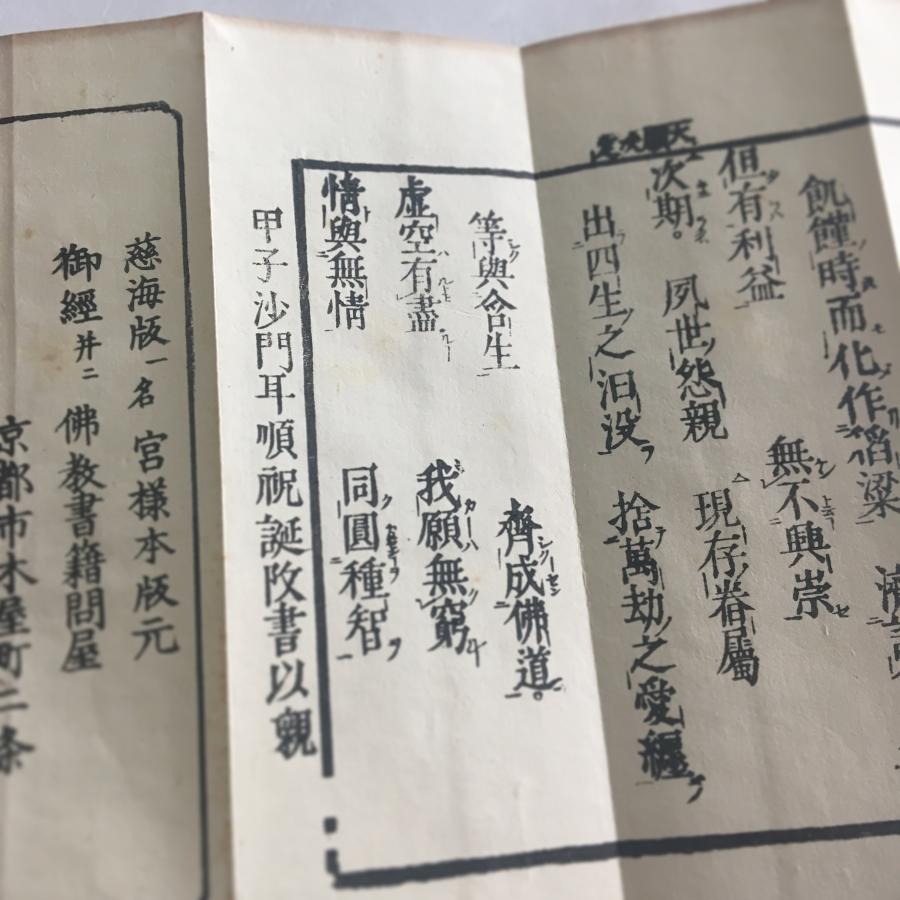 飢饉時而化作稻粱 濟
但有利益 無不興崇
次期。 夙世怨親 現存眷屬
出四生之汨没 捨萬劫之愛纏
等與含生 齊成佛道。
虚空有盡 我願無窮
情與無情 同圓種智
甲子沙門耳順祝誕改書以
慈海版一名 宮樣本版元
御經并ニ 佛教書籍問屋
京都市木屋町二条